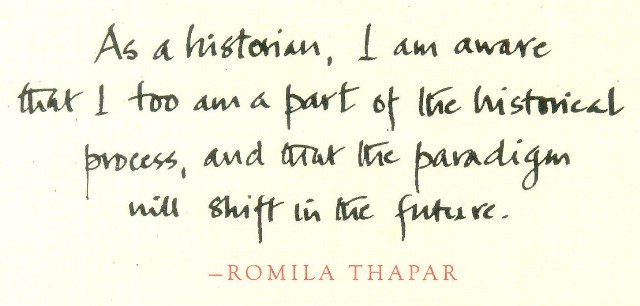 As a historian, I am aware
that I too am a part of the historical
process, and that the paradigm
will shift in the future.
–ROMILA THAPAR